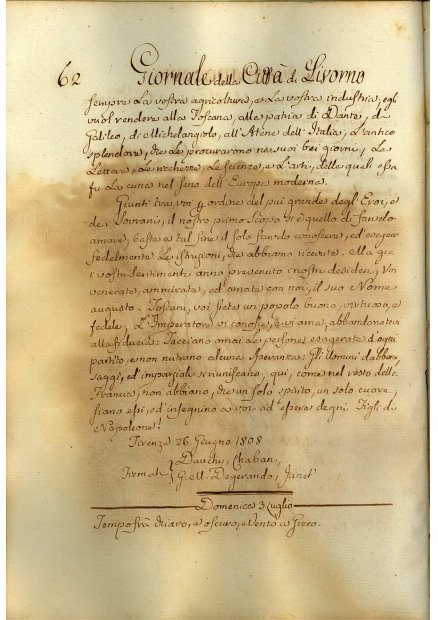 62 Giornale della Città di Livorno
sempre La vostra agricoltura, e La vostra industria, egli
vuol rendere alla Toscana, alla patria di Dante, di
Galileo, di Michelangiolo, all'Atene dell'Italia, L'antico
splendore, che Le procurarono ne suoi bei giorni, Le
Lettere, Le ricchezze, Le scienze, e L'arti, delle quali essa
fu La cuna nel seno dell'Europa moderna.
Giunti tra voi p ordine del più grande degli Eroi, e
de i Sovrani, il nostro primo scopo si è quello di farvelo
amare; basta a tal fine il solo farvelo conoscere, ed eseguir
fedelmente Le istruzioni, che abbiamo ricevute. Ma già
i vostri sentimenti anno prevenuto i nostri desideri, Voi
venerate, ammirate, ed amate con noi, il suo Nome
augusto. Toscani, voi siete un popolo buono, virtuoso, e
fedele, L'Imperatore vi conosce, e vi ama, abbandonatevi
alla fiducia: Tacciano omai Le persone esagerate d'ogni
partito, e non nutrano alcuna speranza: Gli Uomini dabbene,
saggi, ed imparziali si riuniscano: qui, come nel resto della
Francia, non abbiano, che un solo spirito, un solo cuore,
siano essi, ed insegnino a voi ad essere degni Figli di
Napoleone!
Firenze 26 Giugno 1808
Dauchy, Chaban,
Firmati
G. ell. Degerando, Janet
Domenica 3 Luglio
Tempo frà chiaro, e oscuro, e Vento a Greco.